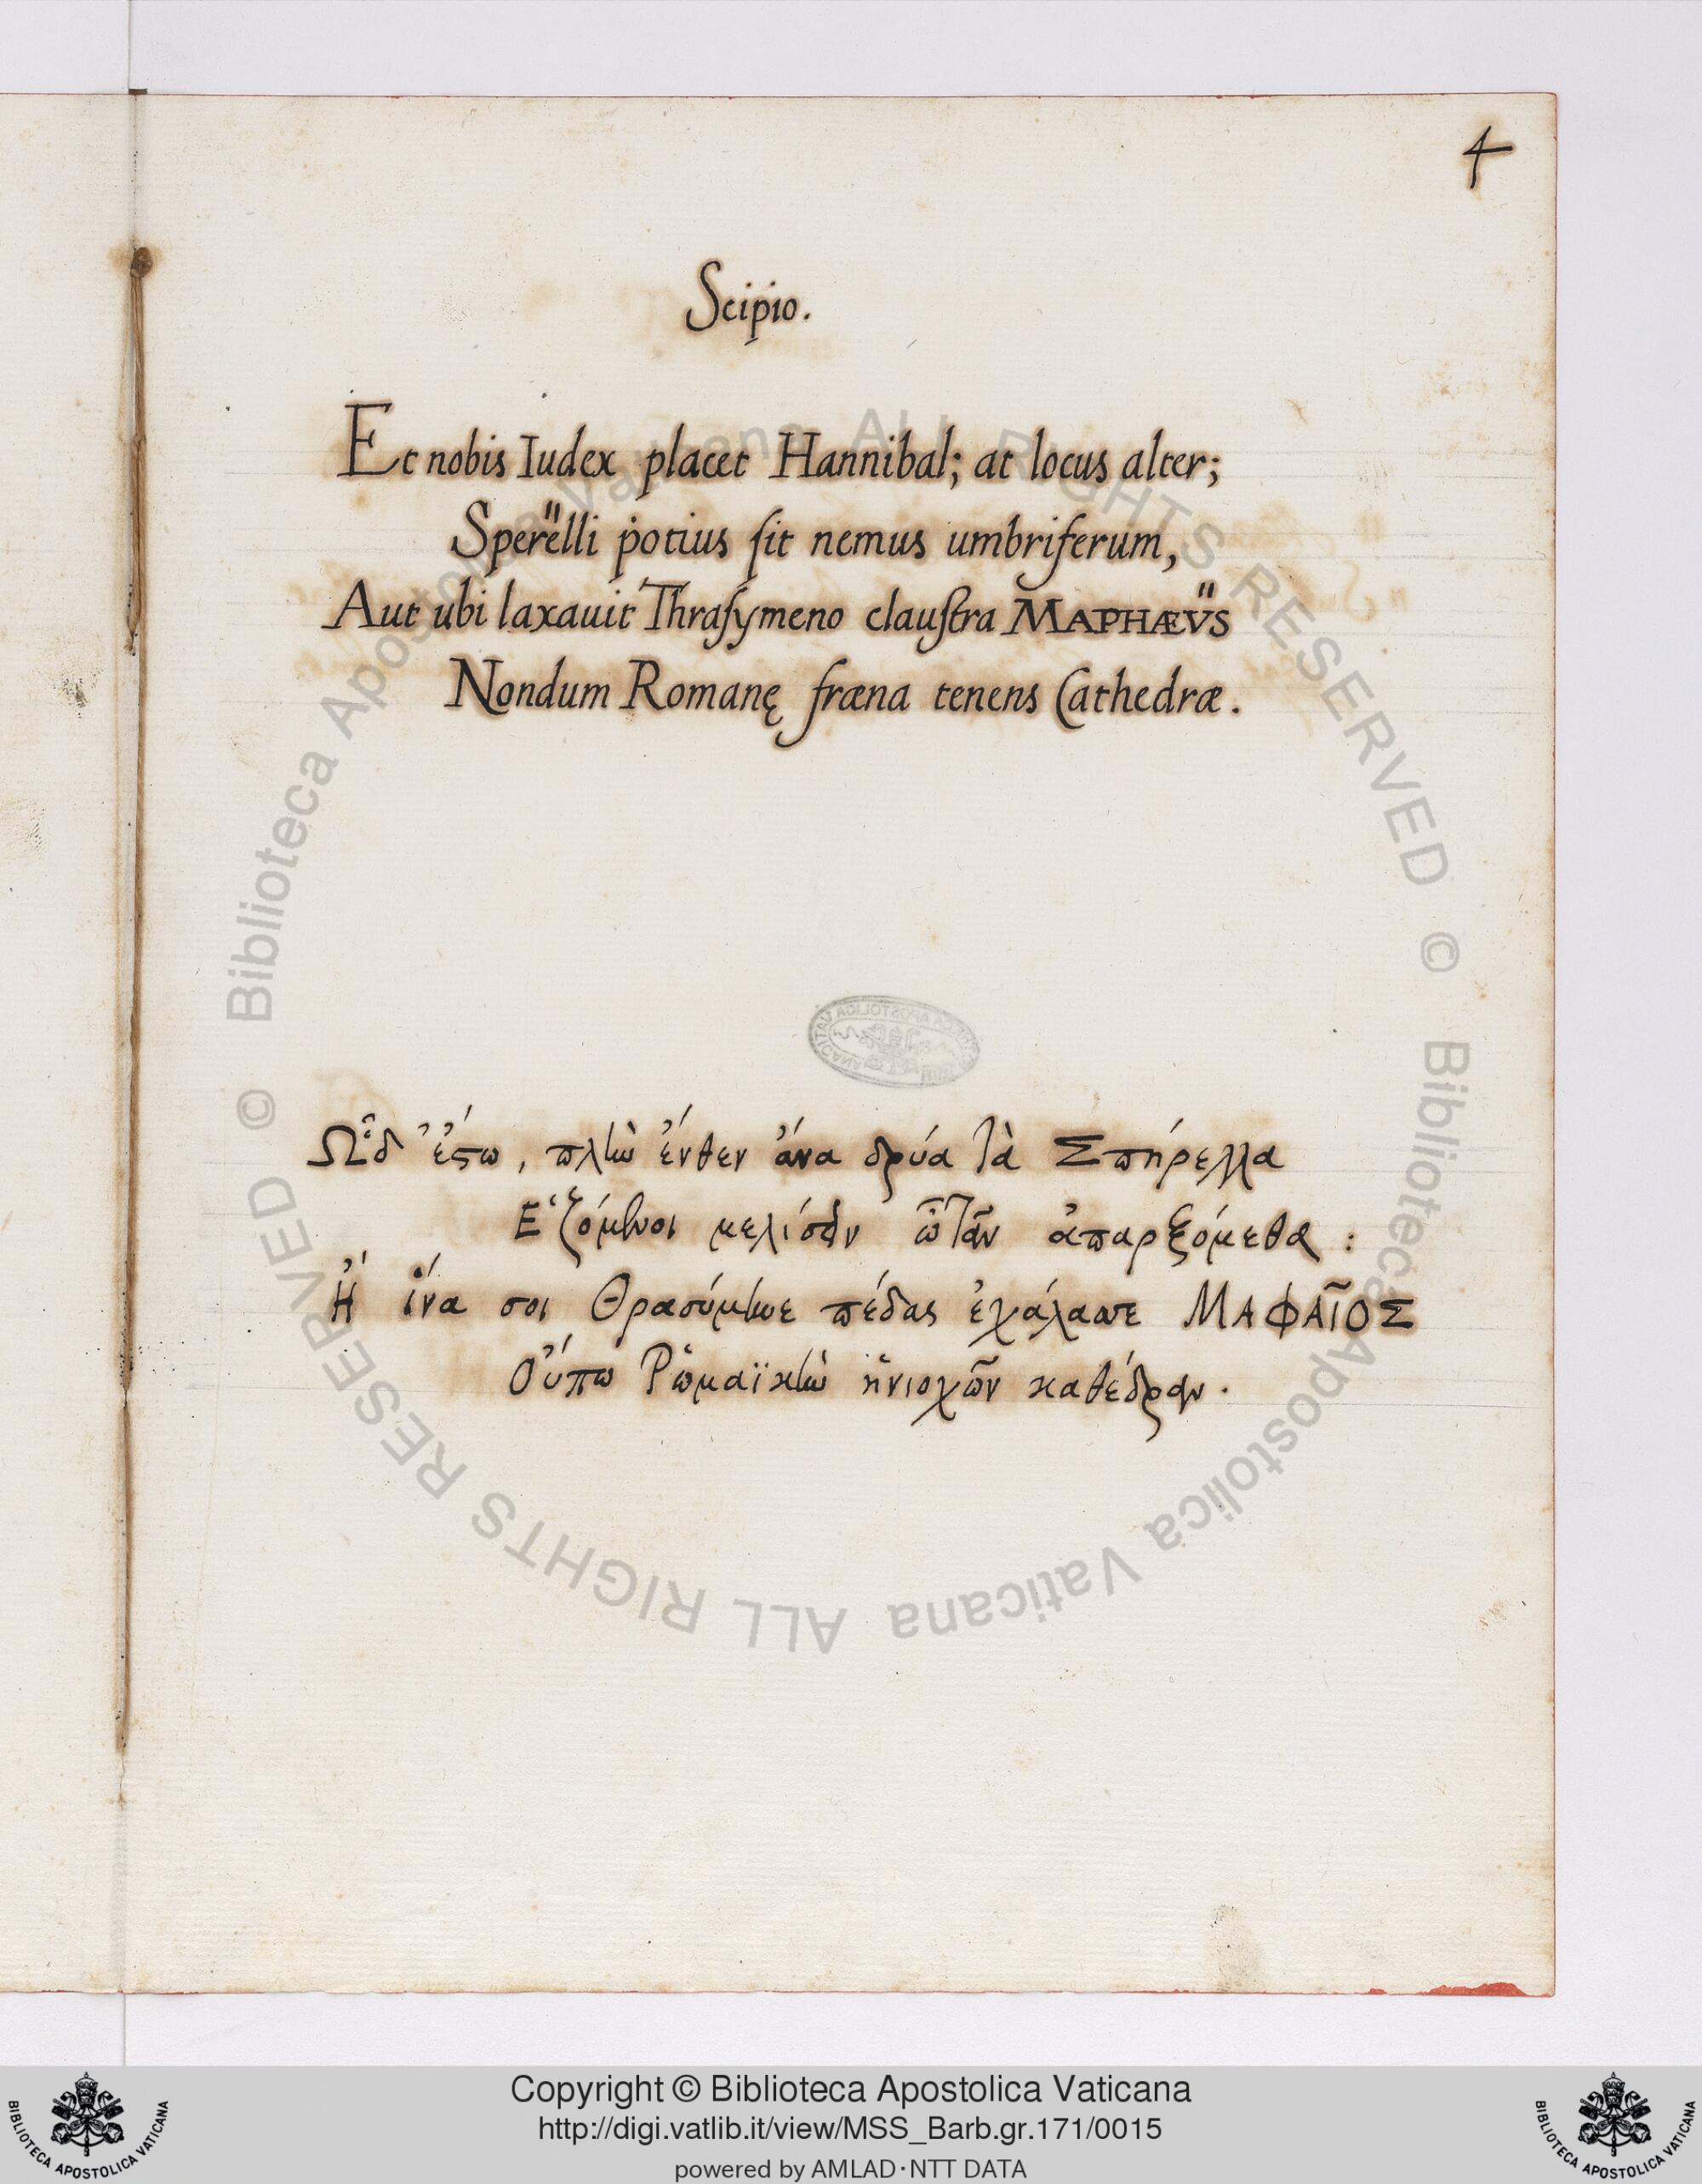 4
Scipio.
Et nobis Iudex placet Hannibal; at locus alter;
Sperëlli potius ſit nemus umbriferum,
Aut ubi laxauit Thraſymeno clauſtra MAPHÆV̈S
Nondum Romanę fræna tenens Cathedræ.
Ὧδ' ἔστω, πλὴν ἔνθεν ἄνα δρύα τὰ Σπήρελλα
Ἑζόμενοι μελίσδεν ὦ τᾶν ἀπαρξόμεθα :
Ἢ ἵνα σοι Θρασύμηνε πέδας ἐχάλασσε ΜΑΦΑῖΟΣ
Οὔπω Ῥωμαϊκὴν ἡνιοχῶν καθέδραν.
© Biblioteca Apostolica Vaticana ALL RIGHTS RESERVED © Biblioteca Apostolica Vaticana ALL RIGHTS RESERVED
Copyright © Biblioteca Apostolica Vaticana
http://digi.vatlib.it/view/MSS_Barb.gr.171/0015
powered by AMLAD·NTT DATA
BIBLIOTECA APOSTOLICA VATICANA
BIBLIOTECA APOSTOLICA VATICANA